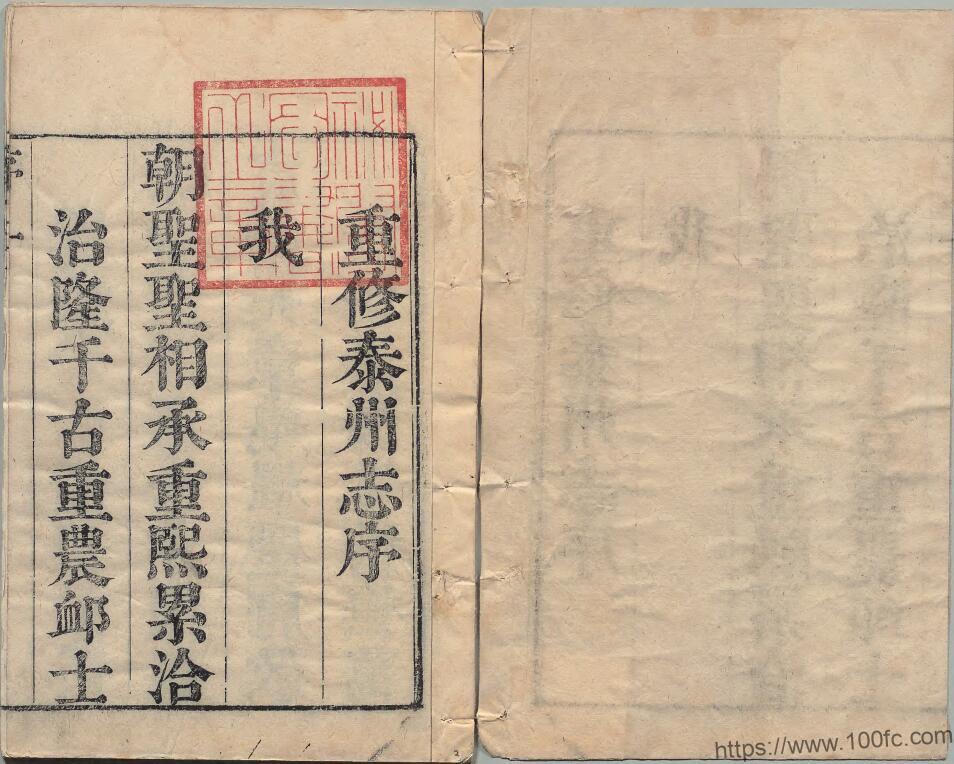 重修泰州志序
我
朝聖聖相承重熙累洽
治隆千古重農䘏士
https://www.100fc.com